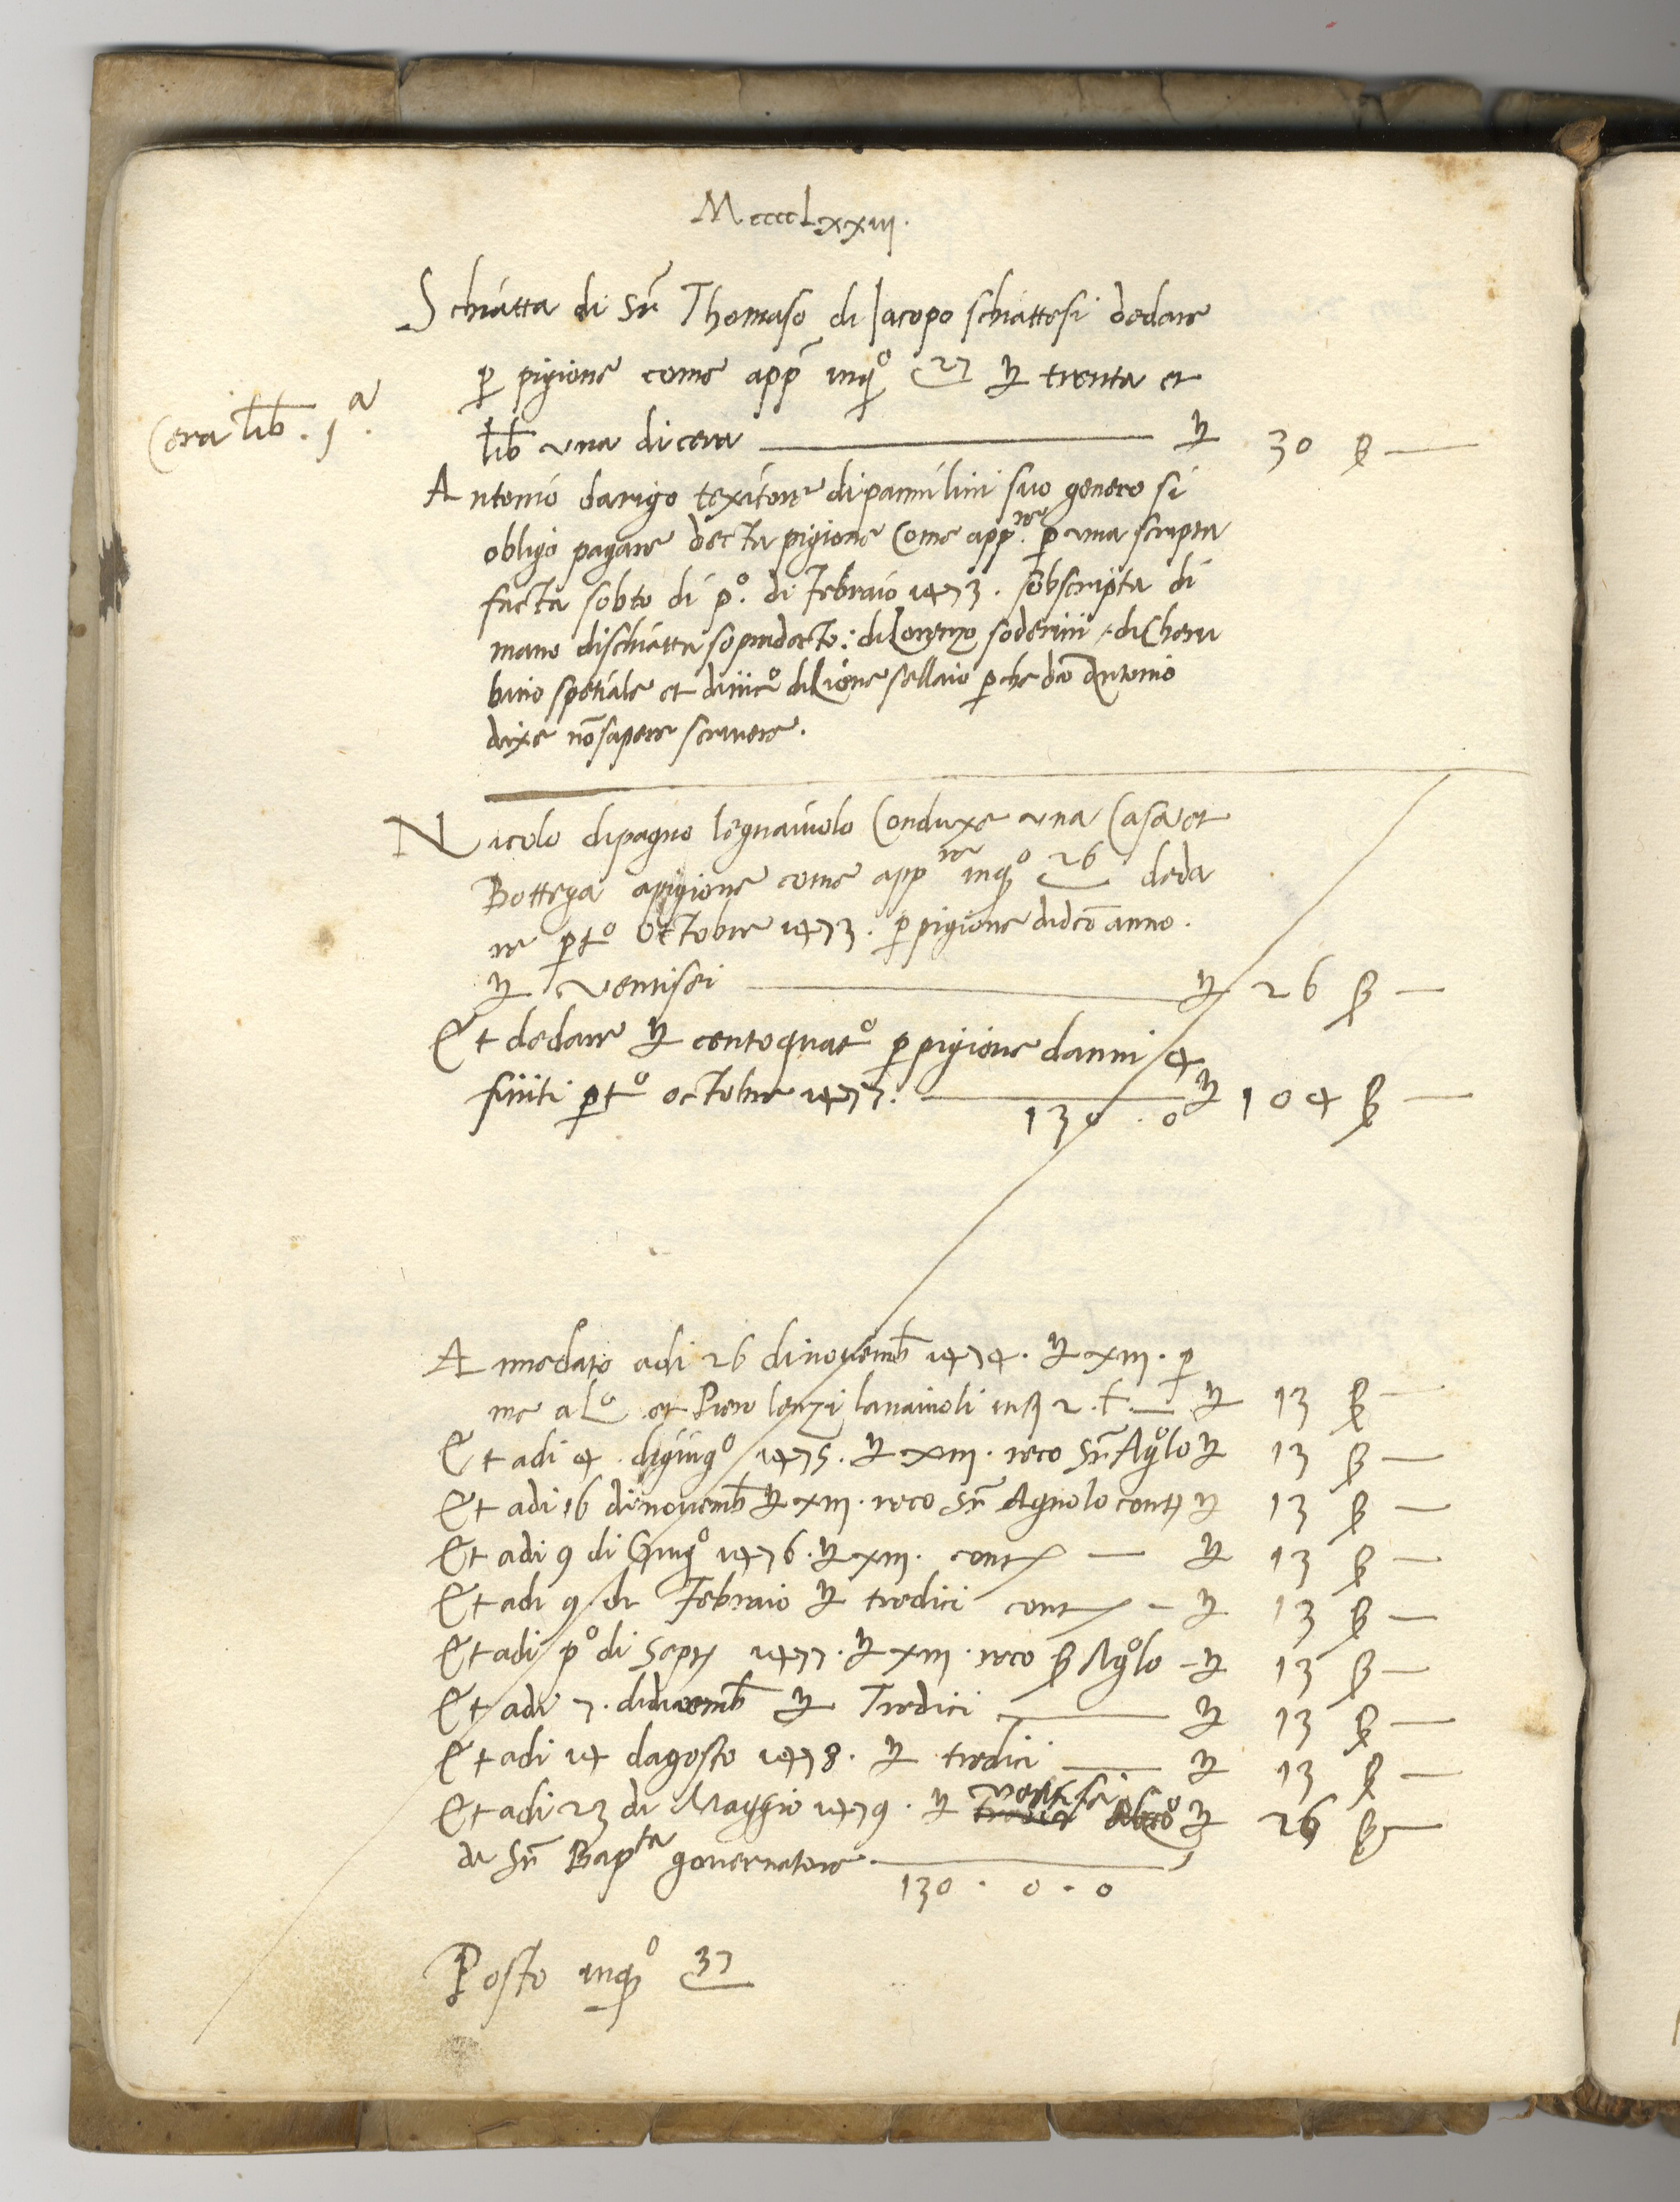 MccccLxxiii.
Schiatta di Sr Thomaso di Jacopo schiattesi dedare
p pigione come app inqo 27 ₶ trenta et
Cera lib. 1a.
lib una di cera ₶ 30 β —
Antonio darigo texitore dipannilini suo genero si
obligo pagare decta pigione Come appre p una scripta
facta sobto di po. di Febraio 1473. sobscripta di
mano dischiatta sopradecto: diLorenzo soderini et diCheru
bino spetiale et di diLione sellaio pche dco Antonio
dixe no sapere scrivere.
Nicolo dipagno legnaiuolo Conduxe una Casa et
Bottega apigione come appre inqo 26 deda
re pto Octobre 1473. p pigione didco anno.
₶ ventisei ₶ 26 β —
Et dedare ₶ centoquato p pigione danni 4
finiti pto octobre 1477. ₶ 104 β —
130 . 0
Annedato adi 26 dinovemb 1474. ₶ xiii. p
me a Lo et Piero lenzi lanaiuoli in 2. t. — ₶ 13 β —
Et adi 4. digiugo 1475. ₶ xiii. reco Sr Agolo ₶ 13 β —
Et adi 16 dinovemb ₶ xiii. reco Sr Agnolo cont ₶ 13 β —
Et adi 9 di Giugo 1476. ₶ xiii. cont — ₶ 13 β —
Et adi 9 di Febraio ₶ tredici cont — ₶ 13 β —
Et adi po di Sept 1477. ₶ xiii. reco β Agolo — ₶ 13 β —
Et adi 7. didicemb ₶ Tredici ₶ 13 β —
Et adi 14 dagosto 1478. ₶ tredici ₶ 13 β —
Et adi 23 di Maggio 1479. ₶ ventisei ₶ 26 β —
da Sr Bapta governatore
130 . 0 . 0
Posto inqo 37